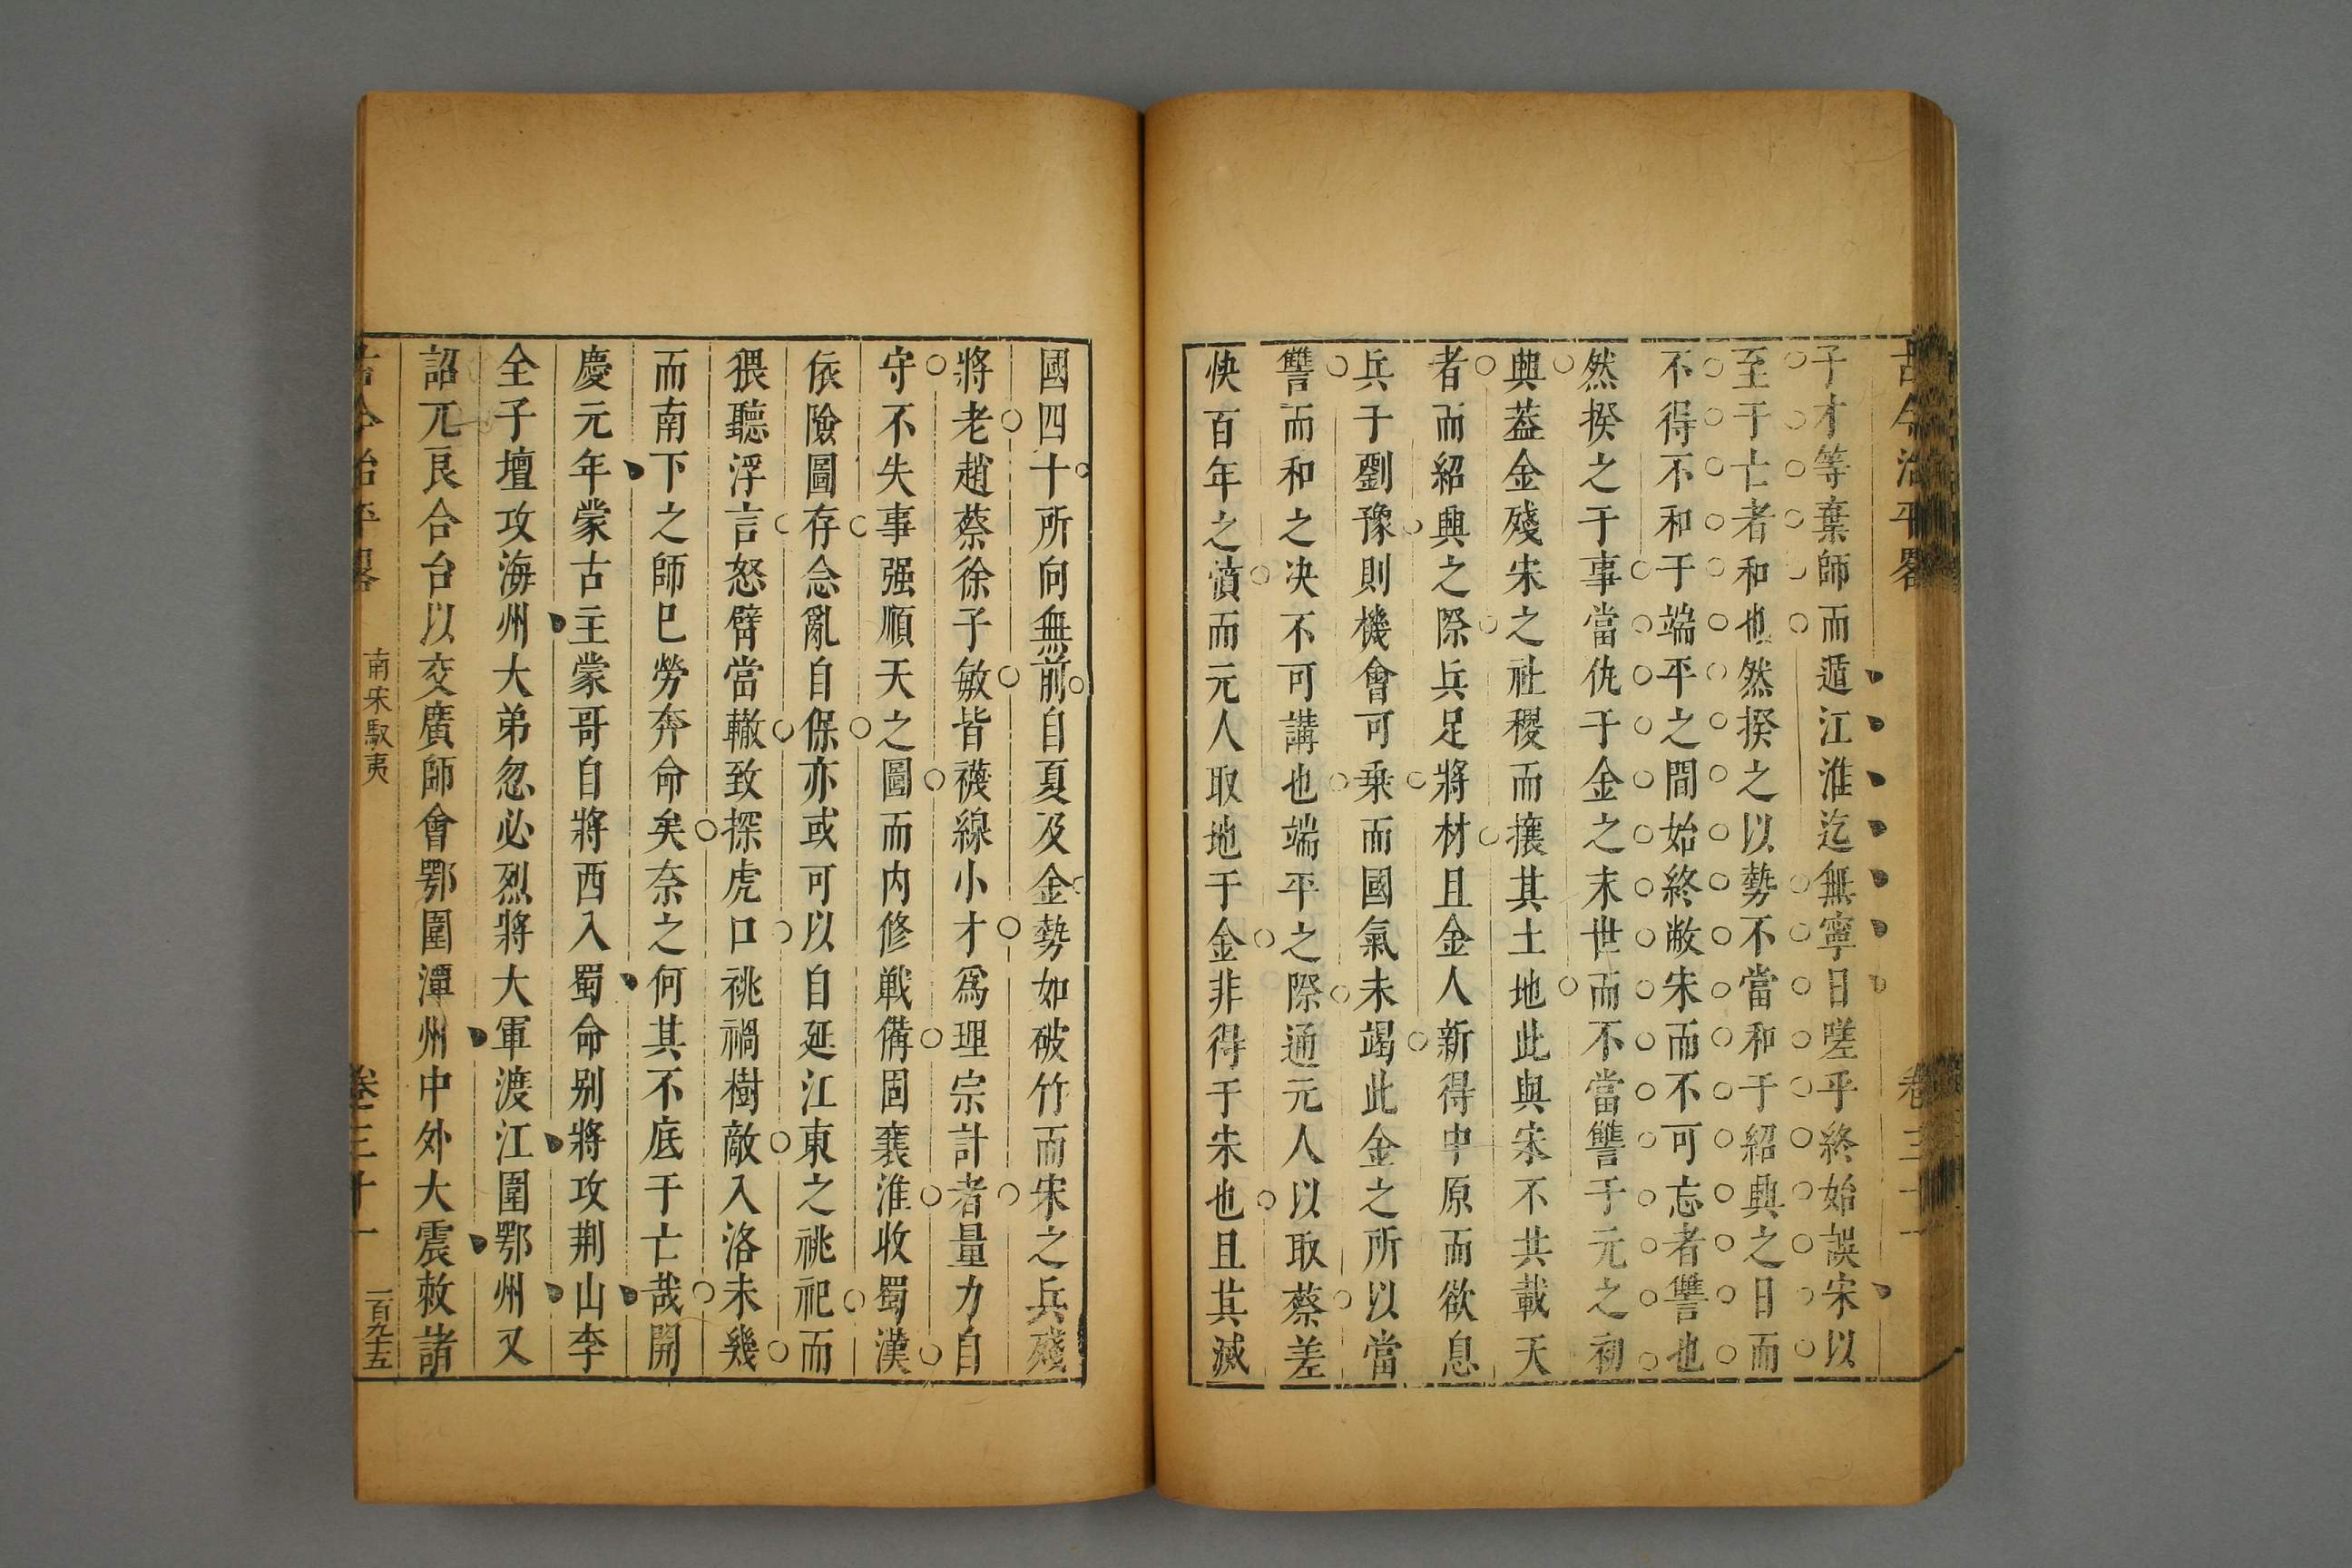 古今治平畧　卷三十一
子才等棄師而遁江淮迄無寧日嗟乎終始誤宋以
至于亡者和也然揆之以勢不當和于紹興之日而
不得不和于端平之間始終敝宋而不可忘者讐也
然揆之于事當仇于金之末世而不當讐于元之初
興葢金殘宋之社稷而攘其土地此與宋不共載天
者而紹興之際兵足將材且金人新得中原而欲息
兵于劉豫則機會可乗而國氣未竭此金之所以當
讐而和之决不可講也端平之際通元人以取蔡差
快百年之憤而元人取地于金非得于宋也且其滅
國四十所向無前自夏及金勢如破竹而宋之兵殘
將老趙蔡徐子敏皆襪線小才爲理宗計者量力自
守不失事强順天之圖而内修戰備固襄淮收蜀漢
依險圖存念亂自保亦或可以自延江東之祧祀而
猥聽浮言怒臂當轍致探虎口祧禍樹敵入洛未幾
而南下之師巳勞奔命矣奈之何其不底于亡哉開
慶元年蒙古主蒙哥自將西入蜀命别將攻荆山李
全子壇攻海州大弟忽必烈將大軍渡江圍鄂州又
詔兀良合台以交廣師會鄂圍潭州中外大震敕諸
古今治平畧　南宋馭夷　卷三十一　一百九十五